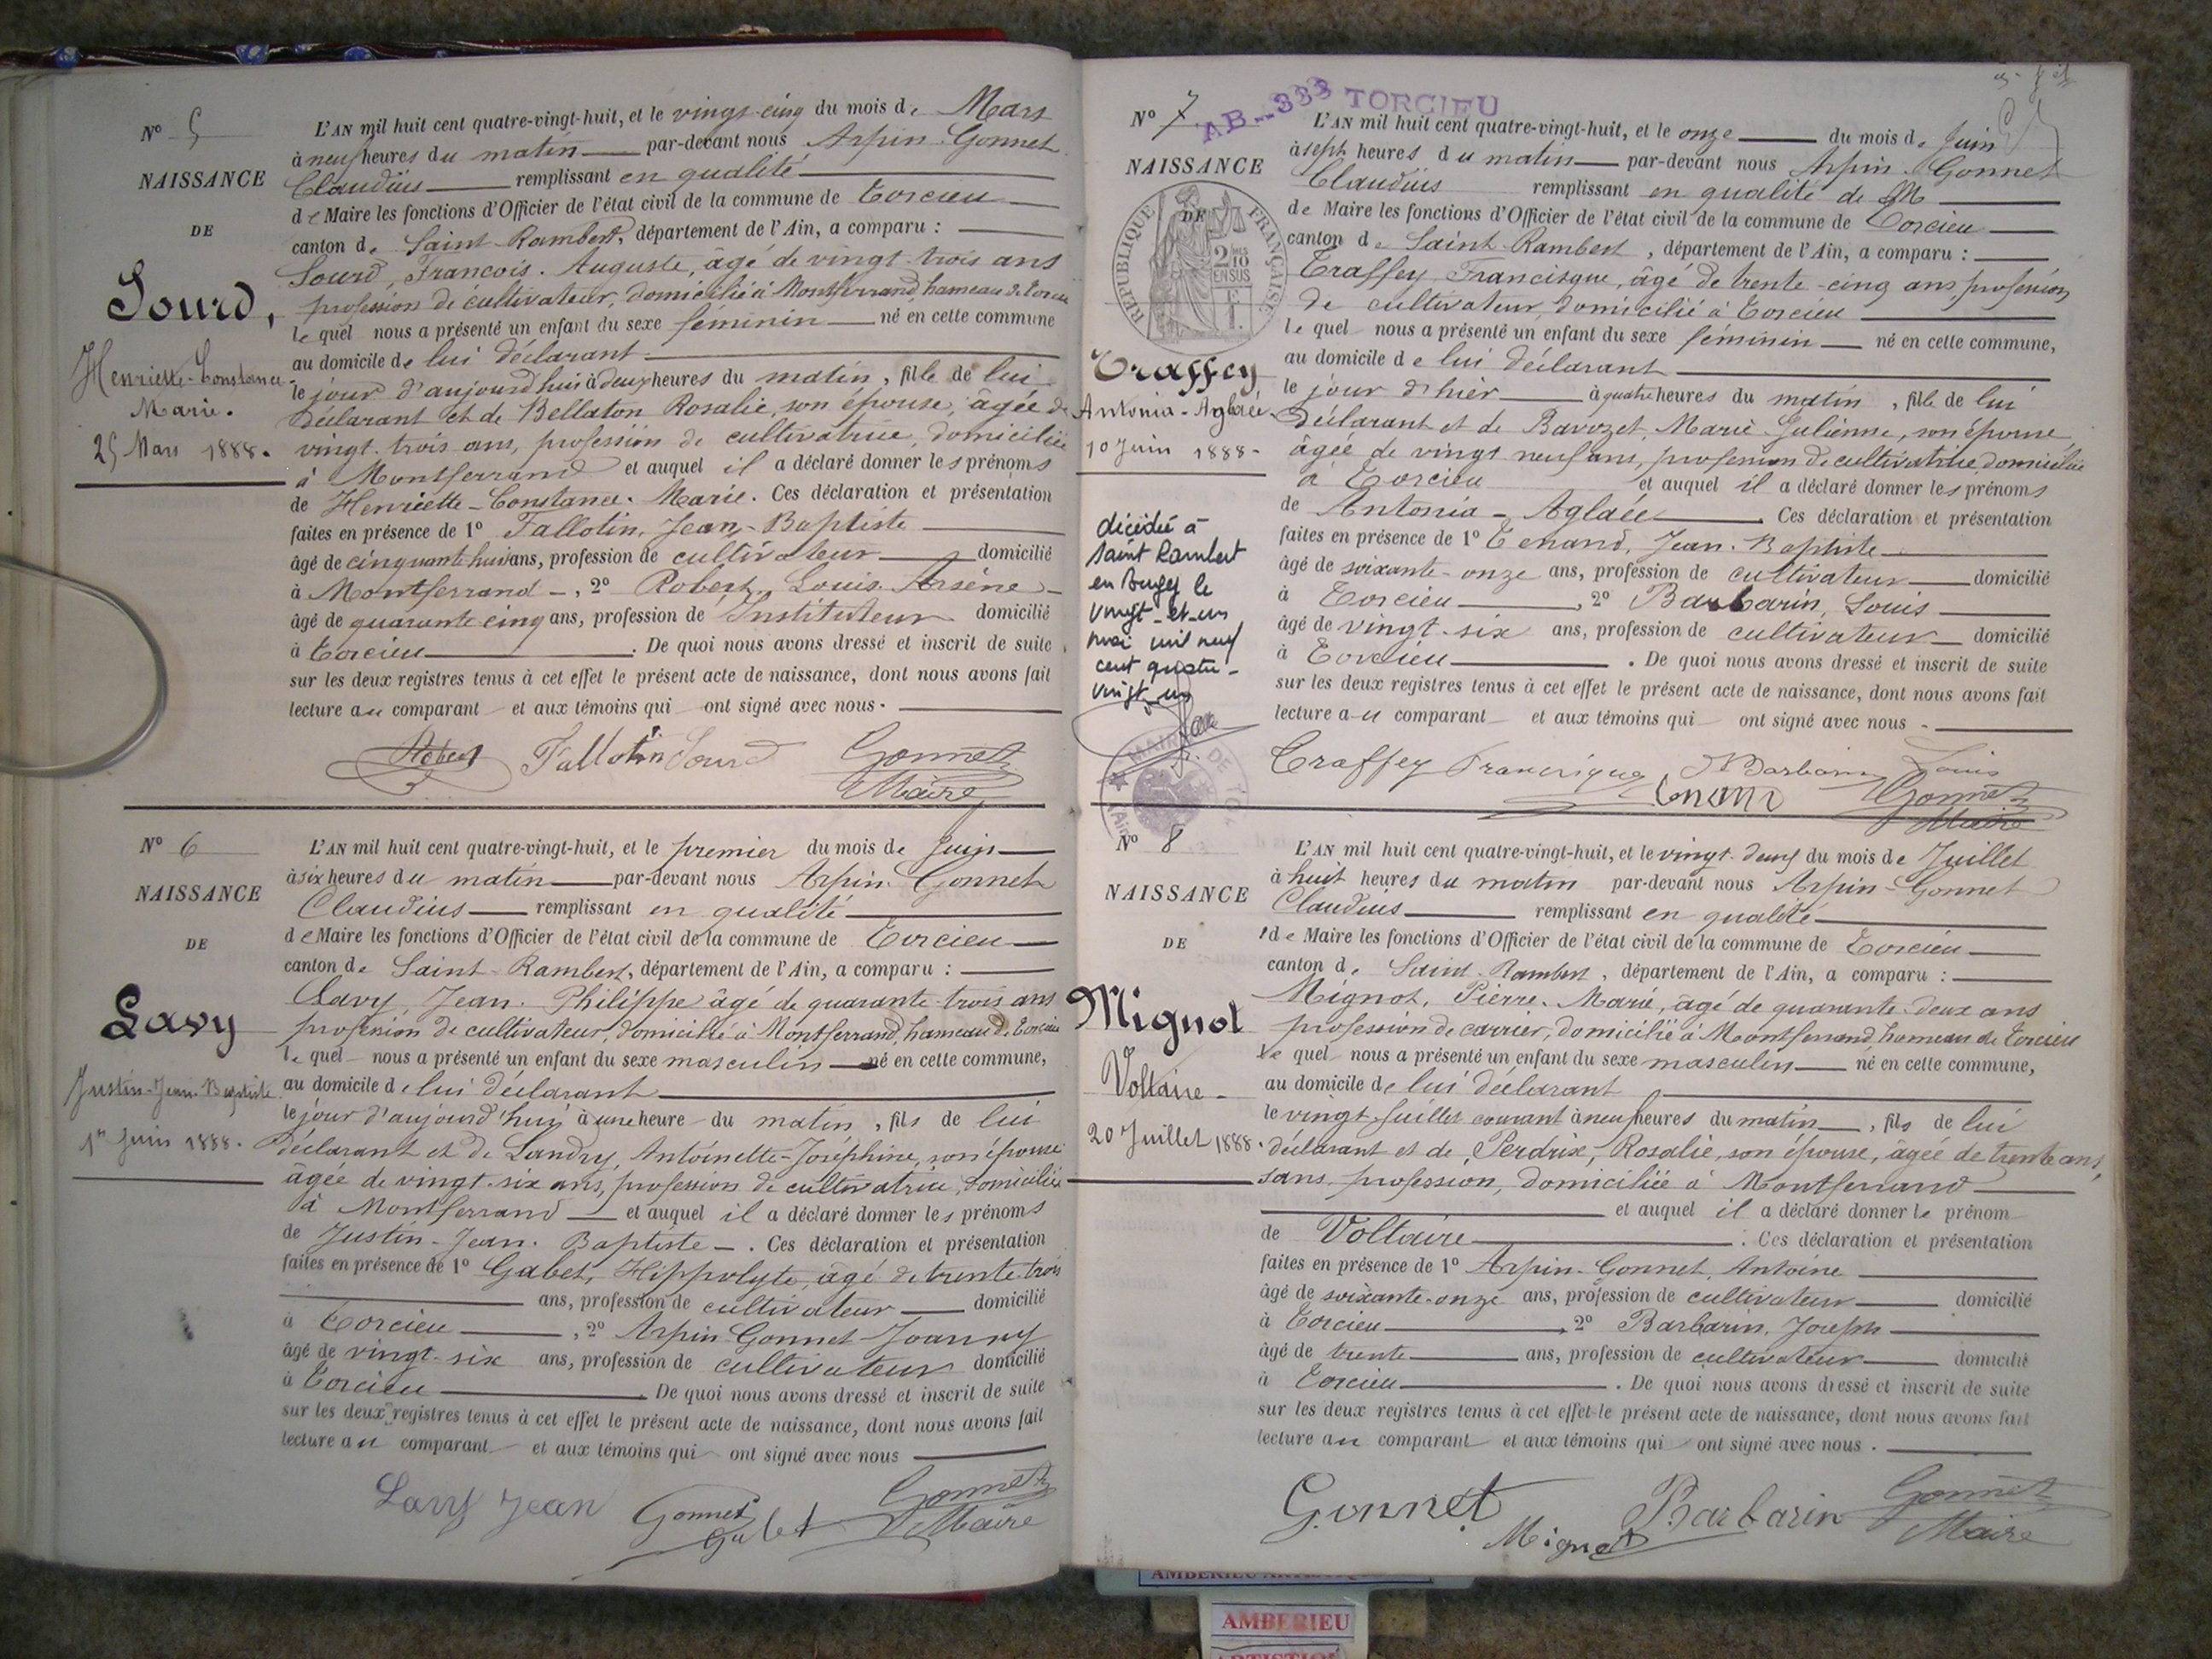 N° 5
NAISSANCE
DE
Sourd,
Henriette-Constance-
Marie.
25 Mars 1888.
L'AN mil huit cent quatre-vingt-huit, et le vingt-cinq du mois de Mars
à neuf heures du matin par-devant nous Arpin-Gonnet
Claudius remplissant en qualité
de Maire les fonctions d'Officier de l'état civil de la commune de Torcieu
canton de Saint-Rambert, département de l'Ain, a comparu :
Sourd, François-Auguste, âgé de vingt-trois ans
profession de cultivateur, domicilié à Montferrand, hameau de Torcieu
lequel nous a présenté un enfant du sexe féminin né en cette commune
au domicile de lui déclarant
le jour d'aujourd'hui à deux heures du matin, fille de lui
déclarant et de Bellaton Rosalie, son épouse, âgée de
vingt-trois ans, profession de cultivatrice, domiciliée
à Montferrand et auquel il a déclaré donner les prénoms
de Henriette-Constance-Marie. Ces déclaration et présentation
faites en présence de 1° Tallotin, Jean-Baptiste
âgé de cinquante huit ans, profession de cultivateur domicilié
à Montferrand, 2° Robert, Louis-Arsène
âgé de quarante cinq ans, profession de Instituteur domicilié
à Torcieu. De quoi nous avons dressé et inscrit de suite
sur les deux registres tenus à cet effet le présent acte de naissance, dont nous avons fait
lecture au comparant et aux témoins qui ont signé avec nous.
Robert Tallotin Sourd Gonnet
Maire
N° 6
NAISSANCE
DE
Lavy
Justin-Jean-Baptiste
1er Juin 1888.
L'AN mil huit cent quatre-vingt-huit, et le premier du mois de Juin
à six heures du matin par-devant nous Arpin-Gonnet
Claudius remplissant en qualité
de Maire les fonctions d'Officier de l'état civil de la commune de Torcieu
canton de Saint-Rambert, département de l'Ain, a comparu :
Lavy, Jean-Philippe âgé de quarante-trois ans
profession de cultivateur, domicilié à Montferrand, hameau de Torcieu
lequel nous a présenté un enfant du sexe masculin né en cette commune,
au domicile de lui déclarant
le jour d'aujourd'hui à une heure du matin, fils de lui
déclarant et de Landry, Antoinette-Joséphine, son épouse
âgée de vingt-six ans, profession de cultivatrice, domiciliée
à Montferrand et auquel il a déclaré donner les prénoms
de Justin-Jean-Baptiste. Ces déclaration et présentation
faites en présence de 1° Gabet, Hippolyte, âgé de trente-trois
ans, profession de cultivateur domicilié
à Torcieu, 2° Arpin-Gonnet Joanny
âgé de vingt-six ans, profession de cultivateur domicilié
à Torcieu. De quoi nous avons dressé et inscrit de suite
sur les deux registres tenus à cet effet le présent acte de naissance, dont nous avons fait
lecture au comparant et aux témoins qui ont signé avec nous
Lavy Jean Gonnet Gonnet
Gabet Maire
AB..333 TORCIEU
N° 7
NAISSANCE
DE
RÉPUBLIQUE FRANÇAISE
2/10 EN SUS
Traffey
Antonia-Aglaée
10 Juin 1888.
décédée à
Saint Rambert
en Bugey le
vingt-et-un
mai mil neuf
cent quatre-
vingt-un
L'AN mil huit cent quatre-vingt-huit, et le onze du mois de Juin
à sept heures du matin par-devant nous Arpin-Gonnet
Claudius remplissant en qualité de M
de Maire les fonctions d'Officier de l'état civil de la commune de Torcieu
canton de Saint-Rambert, département de l'Ain, a comparu :
Traffey Francisque, âgé de trente-cinq ans, profession
de cultivateur, domicilié à Torcieu
lequel nous a présenté un enfant du sexe féminin né en cette commune,
au domicile de lui déclarant
le jour d'hier à quatre heures du matin, fille de lui
déclarant et de Bavozet, Marie-Julienne, son épouse
âgée de vingt neuf ans, profession de cultivatrice domiciliée
à Torcieu et auquel il a déclaré donner les prénoms
de Antonia-Aglaée. Ces déclaration et présentation
faites en présence de 1° Tenand, Jean-Baptiste
âgé de soixante-onze ans, profession de cultivateur domicilié
à Torcieu, 2° Barbarin, Louis
âgé de vingt-six ans, profession de cultivateur domicilié
à Torcieu. De quoi nous avons dressé et inscrit de suite
sur les deux registres tenus à cet effet le présent acte de naissance, dont nous avons fait
lecture au comparant et aux témoins qui ont signé avec nous.
Traffey Francisque Barbarin Louis
Tenand Gonnet
Maire
N° 8
NAISSANCE
DE
Mignot
Voltaire
20 Juillet 1888.
L'AN mil huit cent quatre-vingt-huit, et le vingt-deux du mois de Juillet
à huit heures du matin par-devant nous Arpin-Gonnet
Claudius remplissant en qualité
de Maire les fonctions d'Officier de l'état civil de la commune de Torcieu
canton de Saint-Rambert, département de l'Ain, a comparu :
Mignot, Pierre-Marie, âgé de quarante-deux ans
profession de carrier, domicilié à Montferrand, hameau de Torcieu
lequel nous a présenté un enfant du sexe masculin né en cette commune,
au domicile de lui déclarant
le vingt Juillet courant à neuf heures du matin, fils de lui
déclarant et de Perdrix, Rosalie, son épouse, âgée de trente ans,
sans profession, domiciliée à Montferrand
et auquel il a déclaré donner le prénom
de Voltaire. Ces déclaration et présentation
faites en présence de 1° Arpin-Gonnet, Antoine
âgé de soixante-onze ans, profession de cultivateur domicilié
à Torcieu, 2° Barbarin, Joseph
âgé de trente ans, profession de cultivateur domicilié
à Torcieu. De quoi nous avons dressé et inscrit de suite
sur les deux registres tenus à cet effet le présent acte de naissance, dont nous avons fait
lecture au comparant et aux témoins qui ont signé avec nous.
Gonnet Barbarin Gonnet
Mignot Maire
AMBERIEU
AMBERIEU